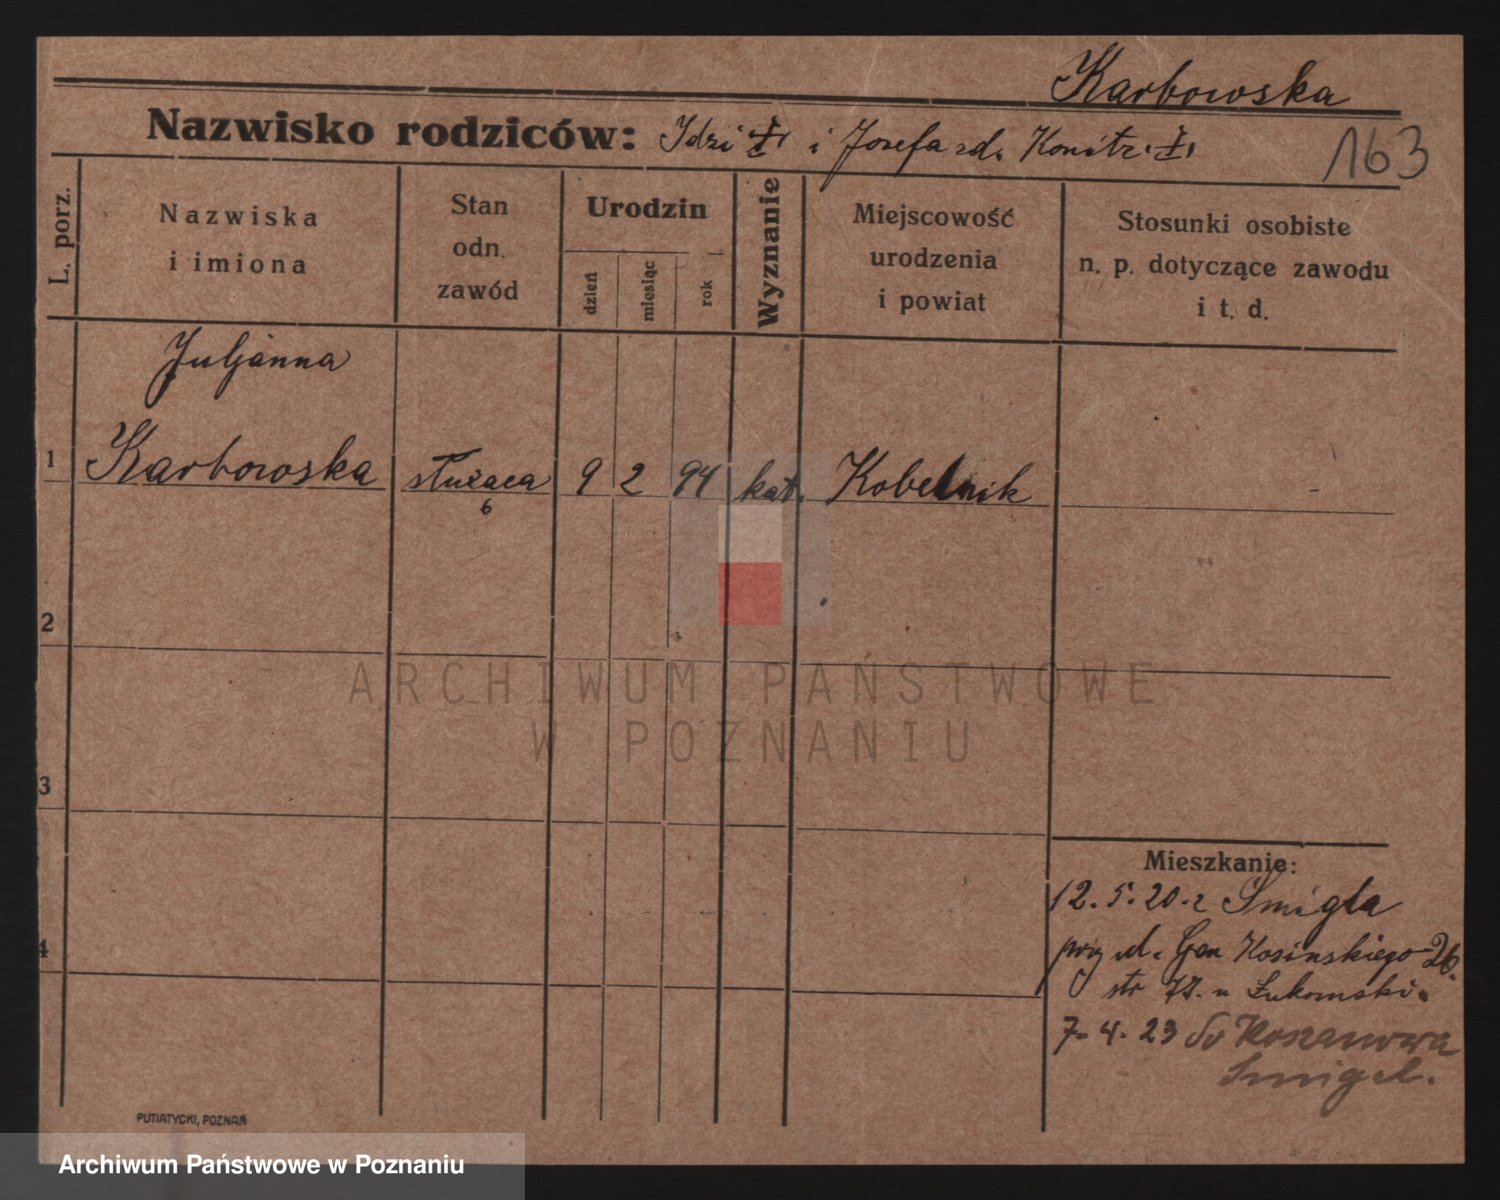 Karbowska
Nazwisko rodziców: Idzi i Józefa zd. Konitz.
163
L. porz.
Nazwiska
i imiona
Stan
odn.
zawód
Urodzin
dzień
miesiąc
rok
Wyznanie
Miejscowość
urodzenia
i powiat
Stosunki osobiste
n. p. dotyczące zawodu
i t. d.
Juljanna
1 Karbowska służąca 9 2 94 kat. Kobelnik
6
2
ARCHIWUM PAŃSTWOWE
W POZNANIU
3
Mieszkanie:
12.5.20. z Śmigla
przy ul. Gen Kosinskiego 26.
str II. u Łukomski.
4
7-4.23 do Koszanowa
Smigel.
PUTIATYCKI, POZNAŃ
Archiwum Państwowe w Poznaniu